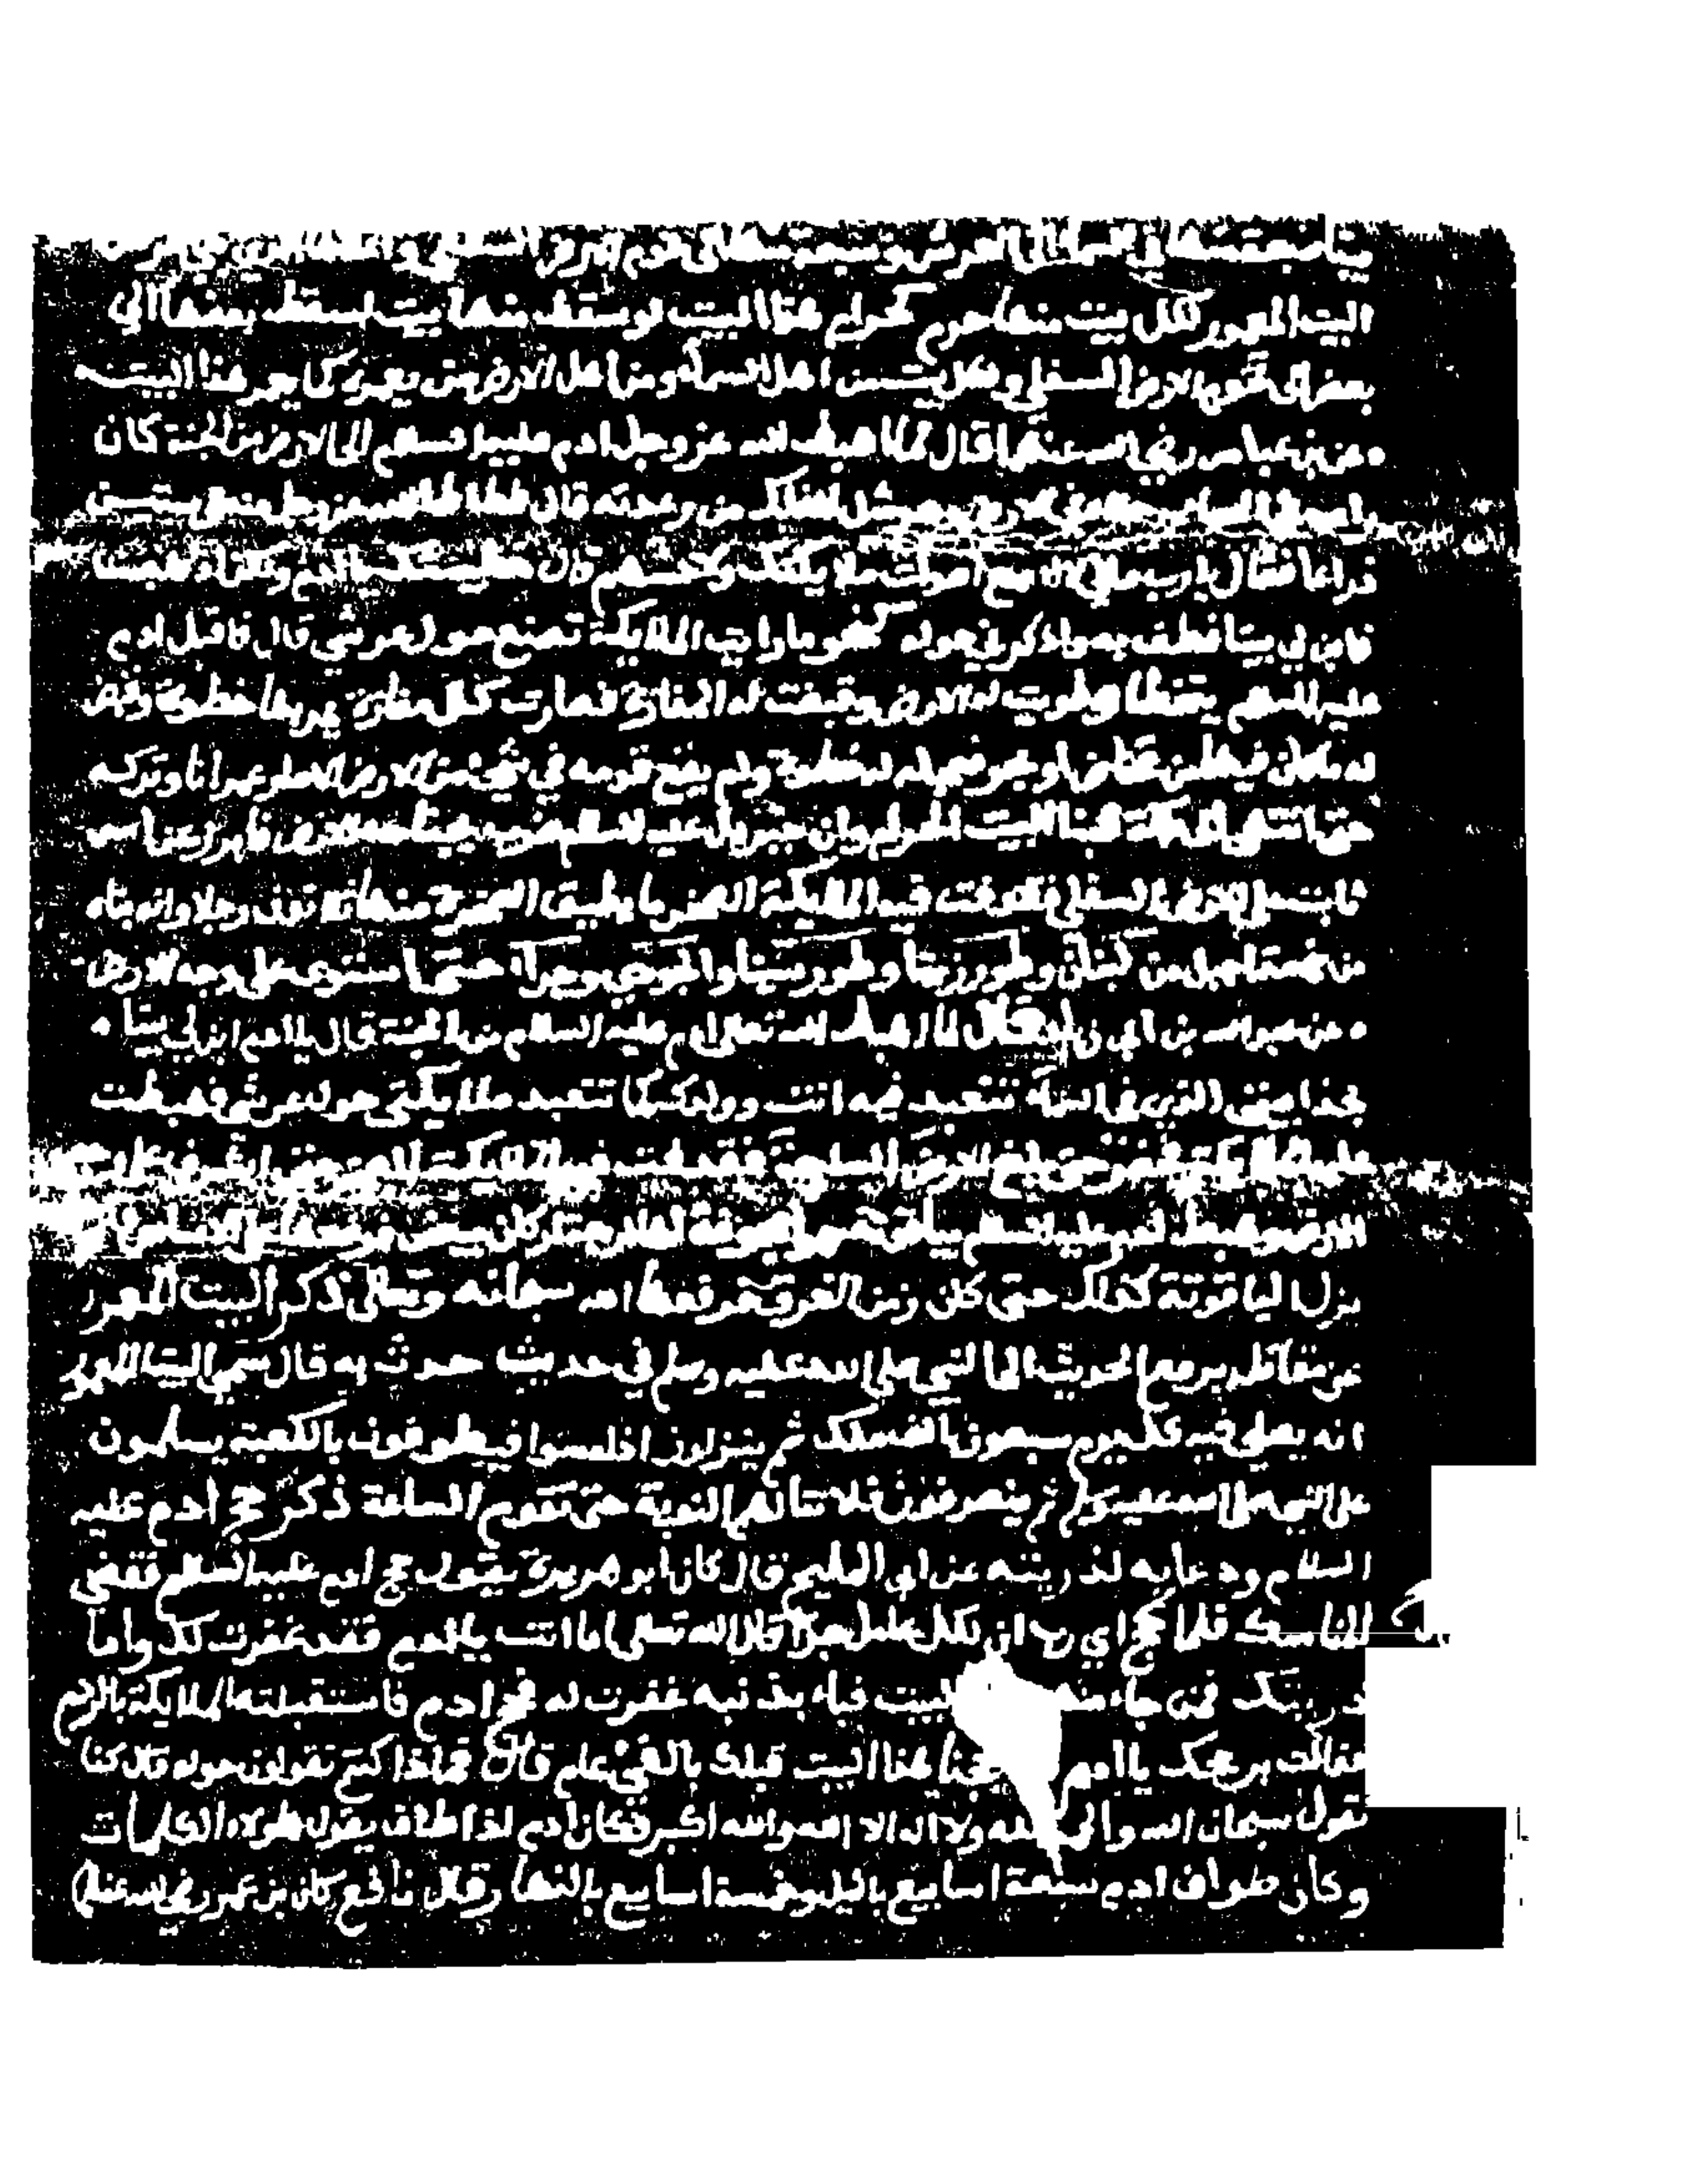 بيتا سبعة منها في السما الى العرش وسبعة منها الى تخوم الارض السفلى و
البيت المعمور لكل بيت منها حرم كحرم هذا البيت لو سقط منها بيت لسقط بعضها الى
بعض الى تخوم الارض السفلى ولكل بيت من اهل السما ومن اهل الارض من يعمره كما يعمر هذا البيت
عن بن عباس رضي الله عنهما قال لما اهبط الله عز وجل ادم عليه السلم الى الارض من الجنة كان
راسه في السما ورجلاه في الارض وهو مثل الفلك من رعدته قال فطاطا الله عز وجل منه الى ستين
ذراعا فقال يا رب مالي لا اسمع اصوات ملايكتك ولا حسهم قال خطيتك يا ادم ولكن اذهب
فابن لي بيتا فطف به واذكرني حوله كنحو ما رايت الملايكة تصنع حول عرشي قال فاقبل ادم
عليه السلم يتخطا وطويت له الارض وقبضت له المفاوز فصارت كل مفازة يمر بها خطوة وقبض
له ما كان فيها من مخاض او بحر فجعله له خطوة ولم يقع قدمه في شي من الارض الا صار عمرانا وبركة
حتى انتهى الى مكة فبنا البيت الحرام وان جبريل عليه السلم ضرب بجناحه الارض فابرز عن اس
ثابت على الارض السفلى فقذفت فيه الملايكة الصخر ما يطيق الصخرة منها ثلاثون رجلا وانه بناه
من خمسة اجبل من لبنان وطور زيتا وطور سينا والجودي وحرا حتى استوى على وجه الارض
عن عبدالله بن ابي زياد قال لما اهبط الله تعالى ادم عليه السلام من الجنة قال يا ادم ابن لي بيتا
بحذا بيتي الذي في السما تتعبد فيه انت وولدك كما تتعبد ملايكتي حول عرشي فهبطت
عليه الملايكة فحفر حتى بلغ الارض السابعة فقذفت فيه الملايكة الصخر حتى اشرف على وجه
الارض وهبط ادم عليه السلم بياقوتة حمرا مجوفة لها اربعة اركان بيض فوضعها على الاساس فلم
يزل الياقوتة كذلك حتى كان زمن الغرق فرفعها الله سبحانه وتعالى ذكر البيت المعمور
عن مقاتل يرفع الحديث الى النبي صلى الله عليه وسلم في حديث حدث به قال سمي البيت المعمور
انه يصلي فيه كل يوم سبعون الف ملك ثم ينزلون اذا امسوا فيطوفون بالكعبة يسلمون
على النبي صلى الله عليه وسلم ثم ينصرفون فلا تنالهم النوبة حتى تقوم الساعة ذكر حج ادم عليه
السلام ودعايه لذريته عن ابي المليح قال كان ابو هريرة يقول حج ادم عليه السلم فقضى
المناسك فلما حج اي رب ان لكل عامل اجرا قال الله تعالى اما انت يا ادم فقد غفرت لك واما
ذريتك فمن جاء منهم البيت فباء بذنبه غفرت له فحج ادم فاستقبلته الملايكة بالردم
فقالت بر حجك يا ادم حججنا هذا البيت قبلك بالفي عام قال فماذا كنتم تقولون حوله قال كنا
نقول سبحان الله والحمد لله ولا اله الا الله والله اكبر فكان ادم اذا طاف يقول هؤلاء الكلمات
وكان طواف ادم سبعة اسابيع بالليل وخمسة اسابيع بالنهار قال نافع كان بن عمر رضي الله عنه